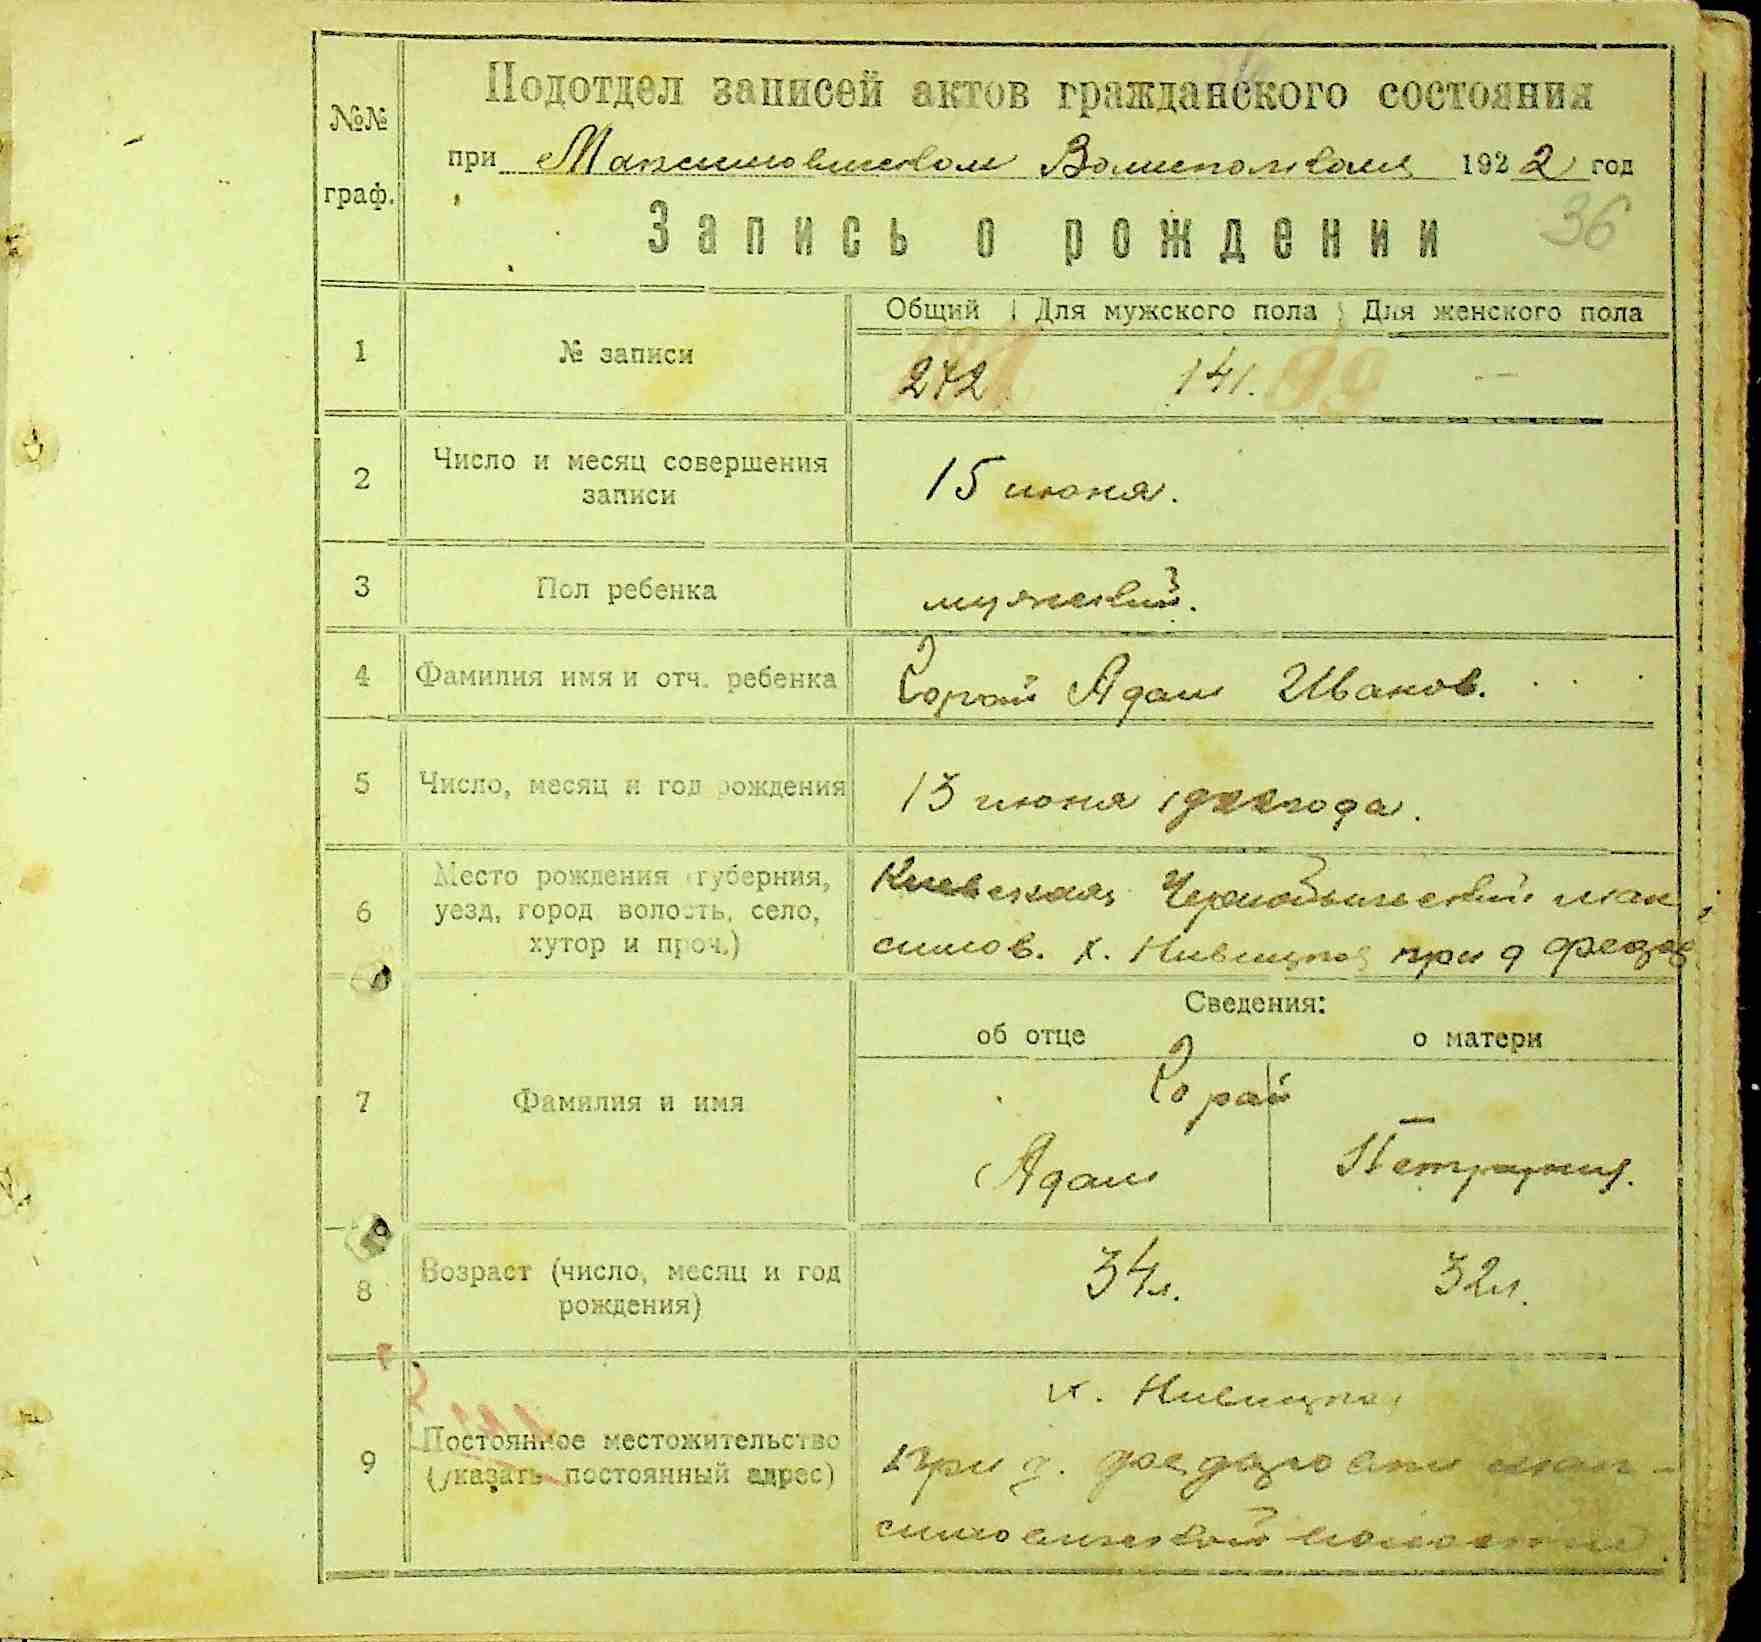 №№ граф.
Подотдел записей актов гражданского состояния
при Максимовическом Волисполкоме 1922 год
Запись о рождении
36
Общий Для мужского пола Для женского пола
1 № записи 272 141. —
2 Число и месяц совершения
записи
15 июня.
3 Пол ребенка мужеский.
4 Фамилия имя и отч. ребенка Горай Адам Иванов.
5 Число, месяц и год рождения 13 июня 1922 года.
6 Место рождения (губерния,
уезд, город волость, село,
хутор и проч.)
Киевская, Чернобыльский мак
симов. х. при д
Сведения:
об отце о матери
7 Фамилия и имя
Горай
Адам
8 Возраст (число, месяц и год
рождения)
34 л. 32 л.
9 Постоянное местожительство
(указать постоянный адрес)
х.
при д. мак-
симовической волости